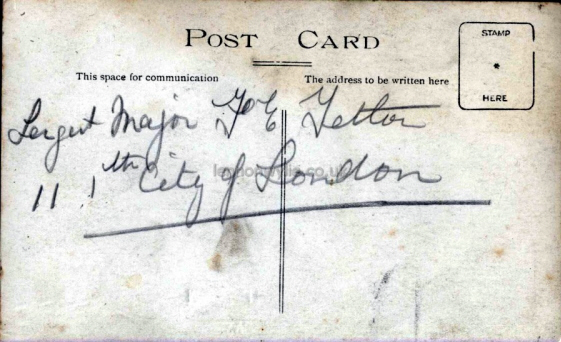 POST CARD
STAMP
*
HERE
This space for communication
The address to be written here
Sergent Major
11th City of London